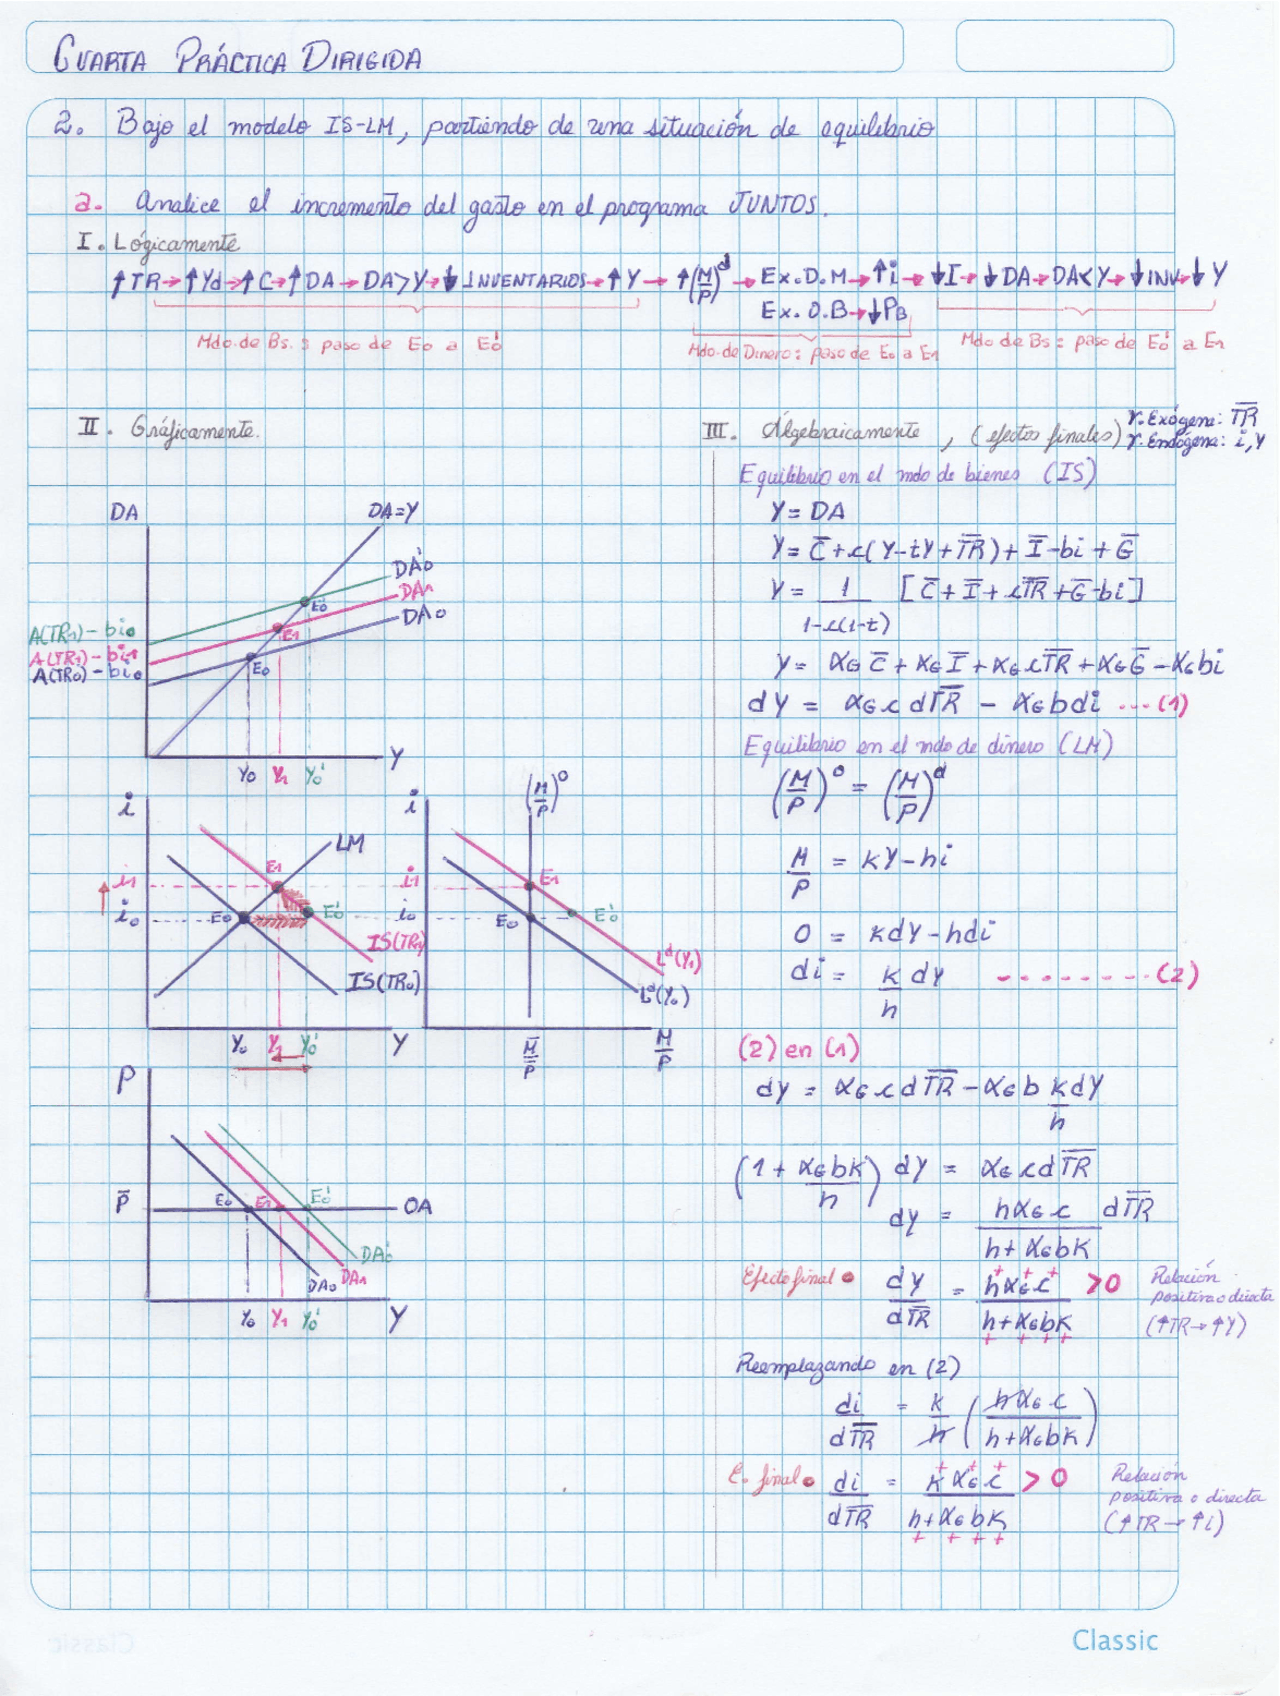 CUARTA PRÁCTICA DIRIGIDA
2. Bajo el modelo IS-LM, partiendo de una situación de equilibrio
a. Analice el incremento del gasto en el programa JUNTOS.
I. Lógicamente
↑TR→↑Yd→↑C→↑DA→DA>Y→↓INVENTARIOS→↑Y→↑(M/P)^d→Ex.D.M→↑i→↓I→↓DA→DA<Y→↓INV→↓Y
Ex.O.B→↓PB
Mdo. de Bs.: paso de E0 a E0'
Mdo. de Dinero: paso de E0 a E1
Mdo de Bs: paso de E0' a E1
II. Gráficamente.
DA
DA=Y
DA0'
DA1
DA0
A(TR1)-bi0
A(TR1)-bi1
A(TR0)-bi0
E0'
E1
E0
Y0 Y1 Y0' Y
i
LM
i1
i0
E1
E0
E0'
IS(TR1)
IS(TR0)
Y0 Y1 Y0' Y
i
(M/P)^0
i1
i0
E1
E0
E0'
L^d(Y1)
L^d(Y0)
M/P
M/P
P
P̅
E0 E1 E0'
OA
DA0'
DA1
DA0
Y0 Y1 Y0' Y
III. Algebraicamente, (efectos finales)
V. Exógena: T̅R̅
V. Endógena: i, Y
Equilibrio en el mdo de bienes (IS)
Y = DA
Y = C̅ + c(Y-tY+T̅R̅) + I̅ - bi + G̅
Y = 1/(1-c(1-t)) [C̅ + I̅ + cT̅R̅ + G̅ - bi]
Y = αG C̅ + αG I̅ + αG cT̅R̅ + αG G̅ - αG bi
dY = αG c dT̅R̅ - αG bdi ...(1)
Equilibrio en el mdo de dinero (LM)
(M/P)^0 = (M/P)^d
M/P = kY-hi
0 = kdY-hdi
di = k/h dy --------(2)
(2) en (1)
dy = αG c dT̅R̅ - αG b k/h dY
(1 + αG bk/h) dy = αG c dT̅R̅
dy = hαG c/(h+αG bk) dT̅R̅
Efecto final • dy/dT̅R̅ = hαG c/(h+αG bk) > 0
Relación
positiva o directa
(↑TR→↑Y)
Reemplazando en (2)
di/dT̅R̅ = k/h (hαG c/(h+αG bk))
E. final • di/dT̅R̅ = kαG c/(h+αG bk) > 0
Relación
positiva o directa
(↑TR→↑i)
Classic